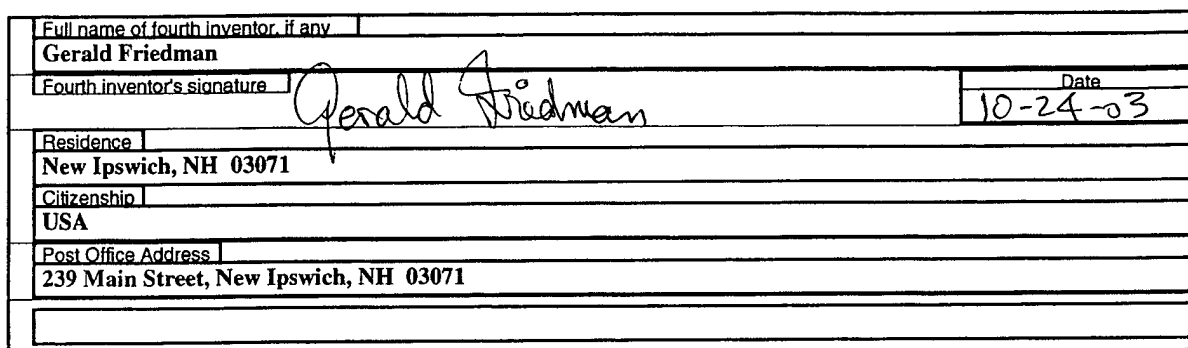 Full name of fourth inventor, if any
Gerald Friedman
Fourth inventor's signature
Gerald Friedman
Date
10-24-03
Residence
New Ipswich, NH 03071
Citizenship
USA
Post Office Address
239 Main Street, New Ipswich, NH 03071